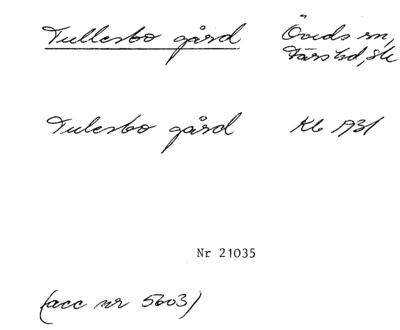 Tullesbo gård Öveds sn,
Färs hd, Sk
Tulesbo gård Kb 1931
Nr 21035
(acc nr 5603)